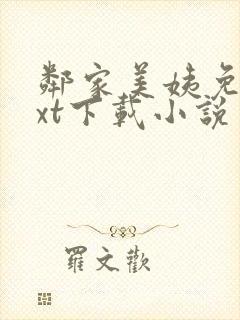 鄰家美姨免
xt下載小說
羅文歡